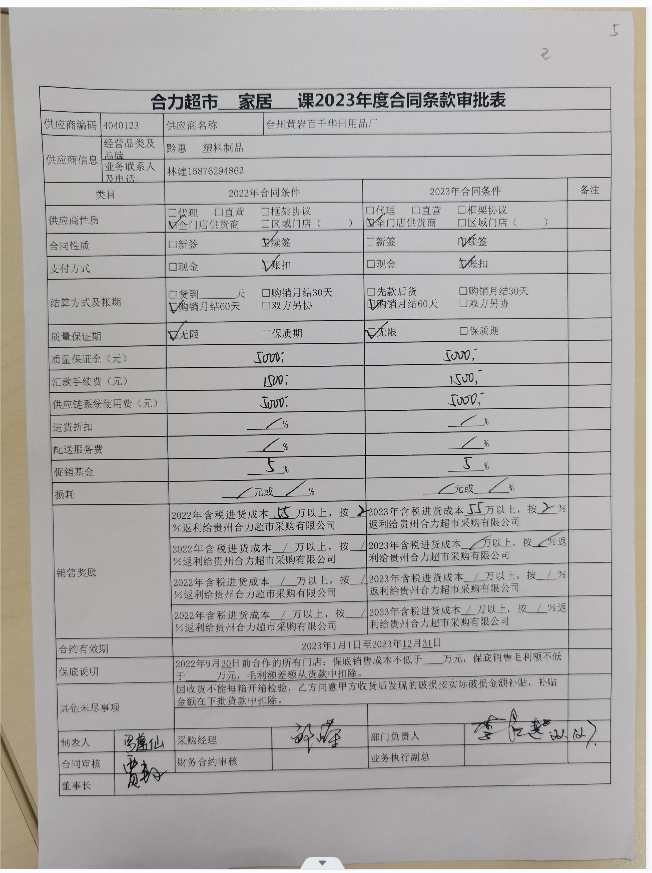 5
2
合力超市 家居 课2023年度合同条款审批表
供应商编码 4040123 供应商名称 台州黄岩百千华日用品厂
供应商信息 经营品类及品牌 黔惠 塑料制品
业务联系人及电话 林建15876294862
类目 2022年合同条件 2023年合同条件 备注
供应商性质 □代理 □直营 □框架协议 □代理 □直营 □框架协议
☑全门店供货商 □区域门店( ) ☑全门店供货商 □区域门店( )
合同性质 □新签 ☑续签 □新签 ☑续签
支付方式 □现金 ☑账扣 □现金 ☑账扣
结算方式及账期 □货到 天 □购销月结30天 □先款后货 □购销月结30天
☑购销月结60天 □双方另协 ☑购销月结60天 □双方另协
质量保证期 ☑无限 □保质期 ☑无限 □保质期
质量保证金(元) 5000,- 5000,-
汇款手续费(元) 1500,- 1500,-
供应链系统使用费(元) 5000,- 5000,-
进货折扣 / % / %
配送服务费 / % / %
促销基金 5 % 5 %
损耗 / 元或 / % / 元或 / %
销售奖励
2022年含税进货成本 55 万以上,按 2 %返利给贵州合力超市采购有限公司 2023年含税进货成本 55 万以上,按 2 %返利给贵州合力超市采购有限公司
2022年含税进货成本 / 万以上,按 / %返利给贵州合力超市采购有限公司 2023年含税进货成本 / 万以上,按 / %返利给贵州合力超市采购有限公司
2022年含税进货成本 / 万以上,按 / %返利给贵州合力超市采购有限公司 2023年含税进货成本 / 万以上,按 / %返利给贵州合力超市采购有限公司
2022年含税进货成本 / 万以上,按 / %返利给贵州合力超市采购有限公司 2023年含税进货成本 / 万以上,按 / %返利给贵州合力超市采购有限公司
合约有效期 2023年1月1日至2023年12月31日
保底说明 2022年9月30日前合作的所有门店:保底销售成本不低于 万元,保底销售毛利额不低
于 万元,毛利额差额从货款中扣除。
其他未尽事项 因收货不能每箱开箱检验,乙方同意甲方收货后发现的破损按实际破损金额补贴,补贴
金额在下批货款中扣除。
制表人 采购经理 部门负责人
合同审核 财务合约审核 业务执行副总
董事长